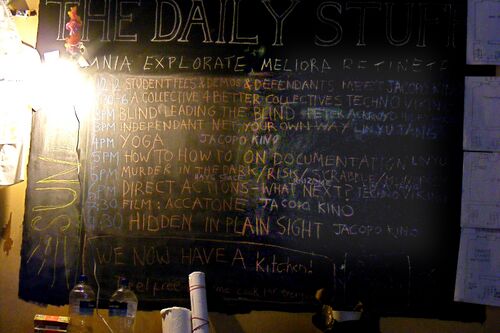 THE DAILY STUFF
OMNIA EXPLORATE, MELIORA RETINETE
STUDENT FEES & DEMOS & DEFENDANTS MEET JACOPO KINO
A COLLECTIVE 4 BETTER COLLECTIVES TECHNO VIKING
3PM BLIND LEADING THE BLIND
3PM INDEPENDANT NET, YOUR OWN WAY LIN YU TANG
4PM YOGA JACOPO KINO
5PM HOW TO HOW TO ON DOCUMENTATION LIN YU
5PM MURDER IN THE DARK / RISK / SCRABBLE /
PM DIRECT ACTIONS - WHAT NEXT?
:30 FILM: ACCATONE - JACOPO KINO
:30 HIDDEN IN PLAIN SIGHT JACOPO KINO
SUN
WE NOW HAVE A Kitchen!
feel free